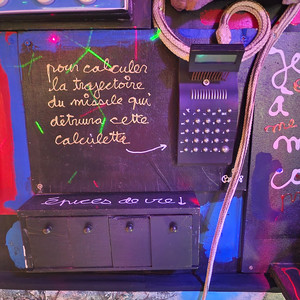 pour calculer
la trajectoire
du missile qui
détruira cette
calculette
épices de vie